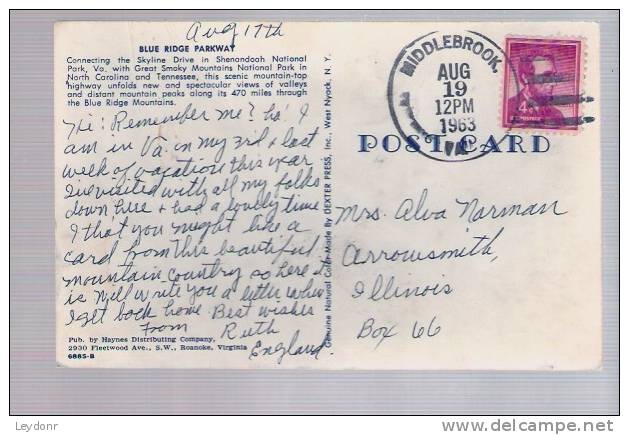 Aug 17th
BLUE RIDGE PARKWAY
Connecting the Skyline Drive in Shenandoah National
Park, Va. with Great Smoky Mountains National Park in
North Carolina and Tennessee, this scenic mountain-top
highway unfolds new and spectacular views of valleys
and distant mountain peaks along its 470 miles through
the Blue Ridge Mountains.
Hi! Remember me? ha! I
am in Va. on my 3rd & last
week of vacation this year.
I've visited with all my folks
down here & had a lovely time
I that you might like a
card from this beautiful
mountain country so here it
is will write you a letter when
I get back home. Best wishes
From Ruth
England.
Pub. by Haynes Distributing Company,
2930 Fleetwood Ave., S.W., Roanoke, Virginia
6885-B
Genuine Natural Color Made By DEXTER PRESS, Inc., West Nyack, N. Y.
MIDDLEBROOK,
AUG
19
12PM
1963
VA.
4¢
POST CARD
Mrs. Alva Norman
Arrowsmith,
Illinois
Box 66
Leydonr
www.delcampe.net